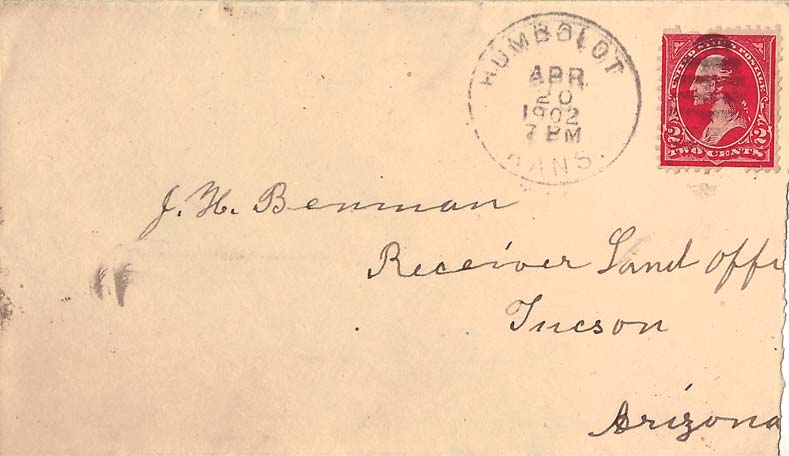 HUMBOLDT
APR
20
1902
7 PM
KANS.
UNITED STATES POSTAGE
2 2
TWO CENTS
J. H. Benman
Receiver Land Offi
Tucson
Arizona